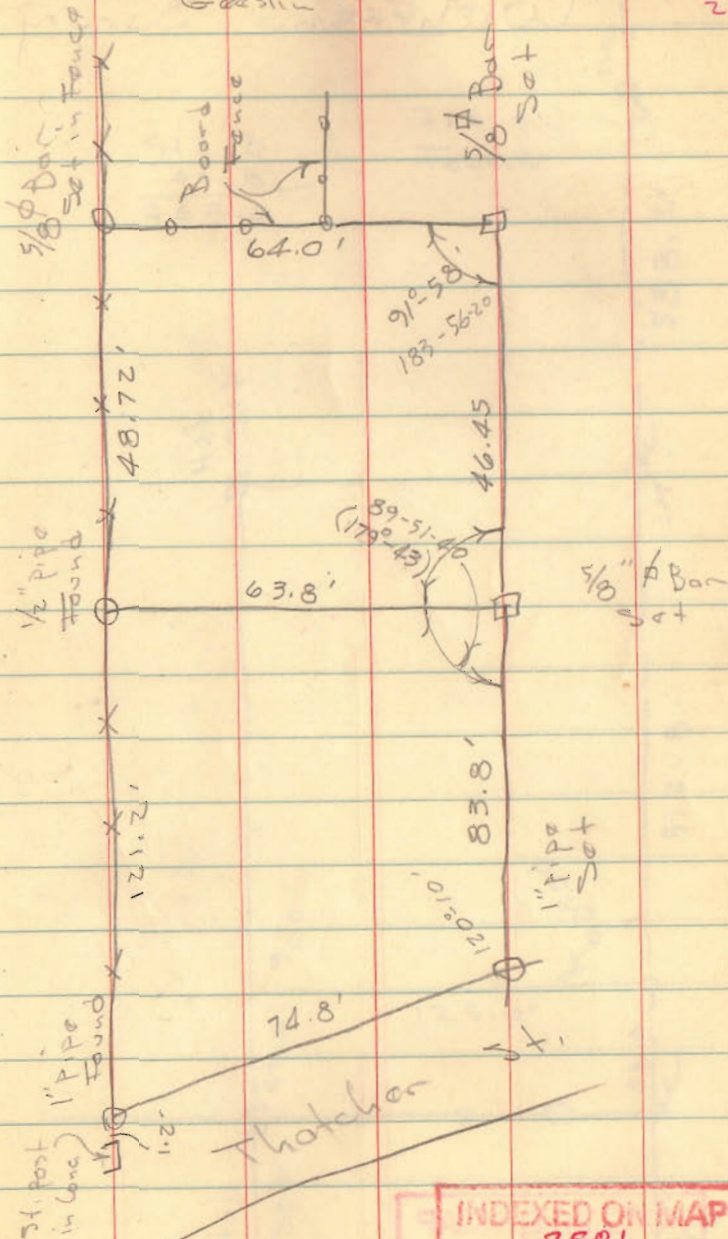 5/8 φ Bar
Set in Fence
Board
Fence
5/8 φ Bar
Set
64.0'
91°-58'
183-56-20
48.72'
46.45
89-51-40
(179°-43)
1/2" pipe
Found
63.8'
5/8" φ Bar
Set
121.2'
83.8'
1" pipe
Set
120°-10'
1" Pipe
Found
74.8'
St.
Thatcher
1.2'
St. Post
in Conc.
INDEXED ON MAP